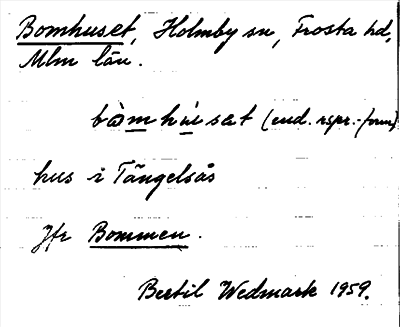 Bomhuset, Holmby sn, Frosta hd,
Mlm län.
bòmhúsæt (end. rspr.-form)
hus i Tängelsås
Jfr Bommen.
Bertil Wedmark 1959.